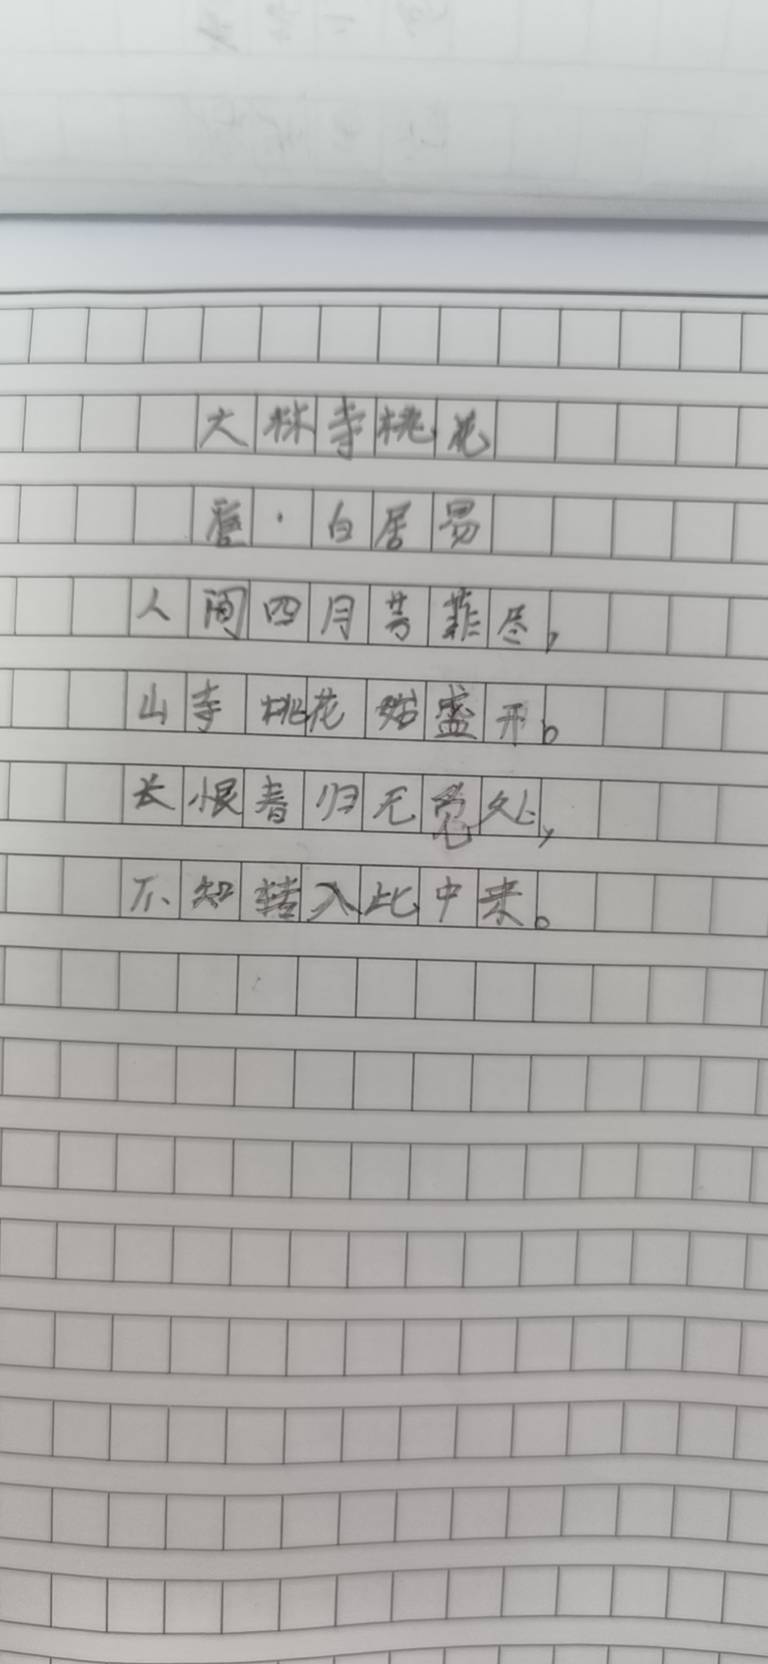 大林寺桃花
唐·白居易
人间四月芳菲尽，
山寺桃花始盛开。
长恨春归无觅处，
不知转入此中来。